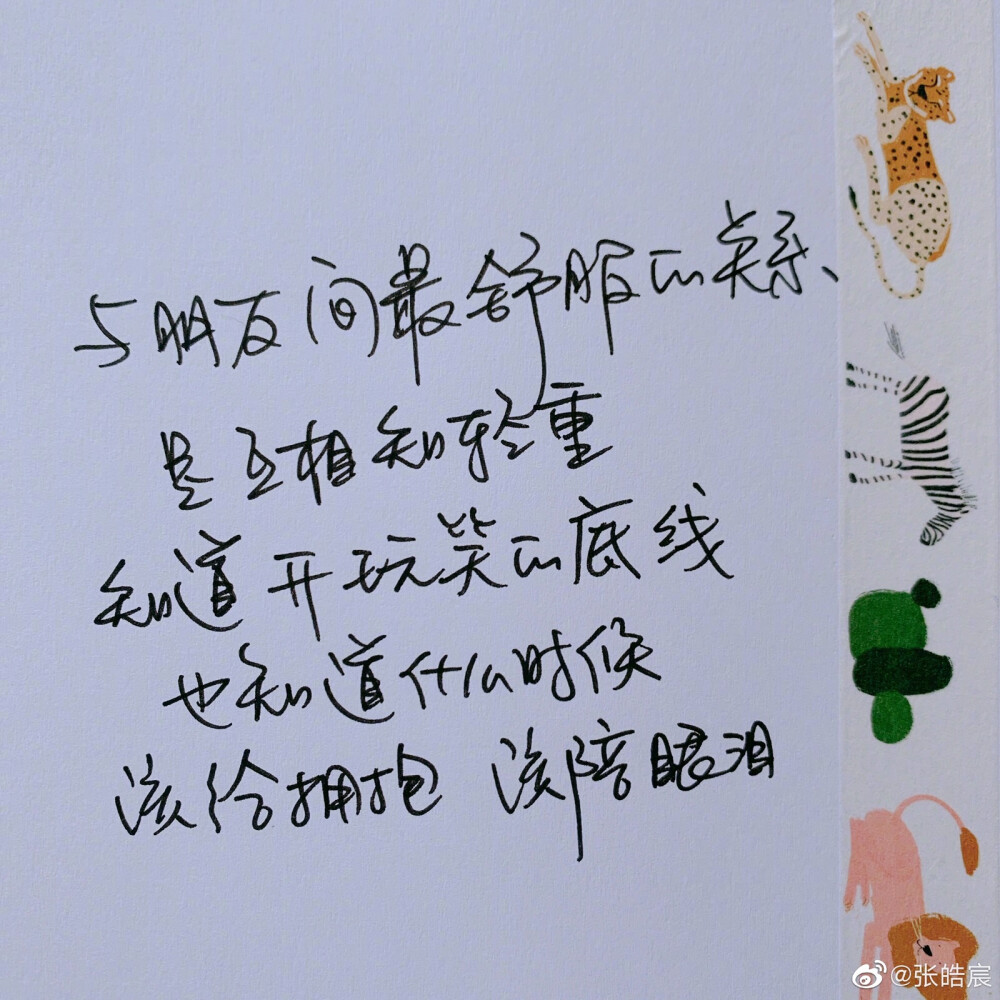 与朋友间最舒服的关系、
是互相知轻重
知道开玩笑的底线
也知道什么时候
该给拥抱 该陪眼泪
@张皓宸